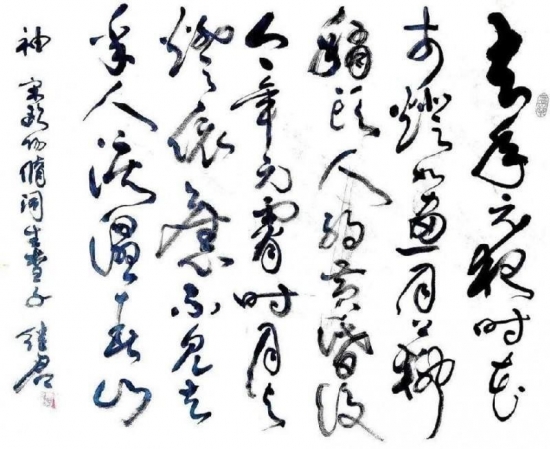 去年元夜时花
市燈如画月上柳
梢头人约黄昏後
今年元宵时月与
燈依舊不见去
年人泪湿春衫
袖 宋欧阳脩词生查子